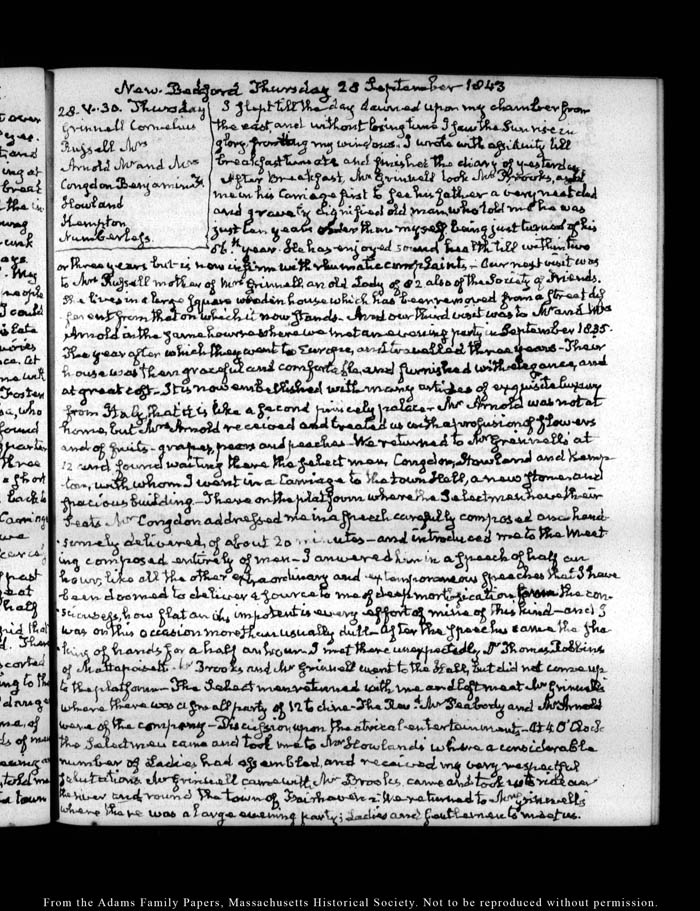 New Bedford Thursday 28 September 1843
28. V. 30. Thursday
Grinnell Cornelius
Russell Mrs
Arnold Mr and Mrs
Congdon Benjamin
Howland
Hempton
Numberless.
I slept till the day dawned upon my chamber from
the east and without losing time I saw the Sun rise in
glory fronting my windows. I wrote with assiduity till
breakfast time and finished the diary of yesterday
After Breakfast, Mr Grinnell took Mr Brooks, and
me in his Carriage first to see his father a very neat clad
and gravely dignified old man who told me he was
just ten years older than myself being just turned of his
86.th year. He has enjoyed sound health till within two
or three years but is now infirm with rheumatic complaints. Our next visit was
to Mrs Russell mother of Mrs Grinnell an old Lady of 82 also of the Society of Friends.
She lives in a large square wooden house which has been removed from a Street dif
ferent from that on which it now stands. And our third visit was to Mr and Mrs
Arnold in the same house where we met an evening party in September 1835.
The year after which they went to Europe, and travelled three years. Their
house was then graceful and comfortable, and furnished with elegance, and
at great cost. It is now embellished with many articles of exquisite luxury
from Italy, that it is like a second princely palace. Mr Arnold was not at
home, but Mrs Arnold received and treated us with a profusion of flowers
and of fruits. grapes, pears and peaches. We returned to Mr Grinnell's at
12 and found waiting there the Select men, Congdon, Howland and Hemp
ton, with whom I went in a Carriage to the town Hall, a new stone and
spacious building. There on the platform where the Selectmen have their
Seats Mr Congdon addressed me in a Speech carefully composed and hand
somely delivered, of about 20 minutes and introduced me to the Meet
ing composed entirely of men. I answered him in a Speech of half an
hour, like all the other extraordinary and extemporaneous speeches that I have
been doomed to deliver a source to me of deep mortification from the con
sciousness, how flat and impotent is every effort of mine of this kind and I
was on this occasion more than usually dull. After the Speeches came the sha
king of hands for a half an hour. I met there unexpectedly, Dr Thomas Robbins
of Mattapoisett. Mr Brooks and Mr Grinnell went to the Hall, but did not come up
to the platform. The Select men returned with me and left me at Mr Grinnell's
where there was a small party of 12 to dine. The Revd. Mr Peabody and Mr Arnold
were of the company. Discussion upon theatrical entertainments. At 4 O'Clock
the Selectmen came and took me to Mr Howland's where a considerable
number of Ladies had assembled, and received my very respectful
salutations. Mr Grinnell came with Mr Brooks, came and took us to ride over
the river and round the town of Fairhaven. We returned to Mr Grinnell's
where there was a large evening party; Ladies and Gentlemen to meet us.
From the Adams Family Papers, Massachusetts Historical Society. Not to be reproduced without permission.